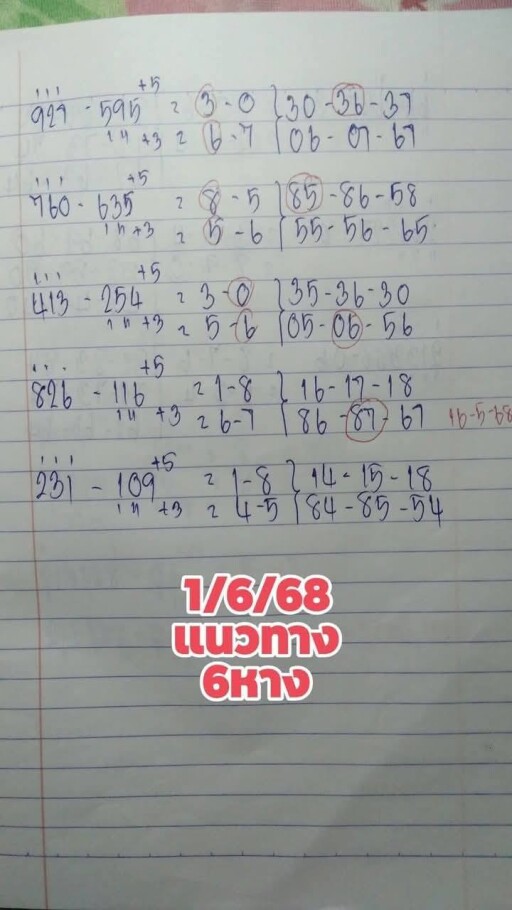 +5
927 - 595 = 3 - 0 } 30 - 36 - 37
14 +3 = 6 - 7 { 06 - 07 - 67
+5
760 - 635 = 8 - 5 } 85 - 86 - 58
14 +3 = 5 - 6 { 55 - 56 - 65
+5
413 - 254 = 3 - 0 } 35 - 36 - 30
14 +3 = 5 - 6 { 05 - 06 - 56
+5
826 - 116 = 1 - 8 } 16 - 17 - 18
14 +3 = 6 - 7 { 86 - 87 - 67 16-5-68
+5
231 - 109 = 1 - 8 } 14 - 15 - 18
14 +3 = 4 - 5 { 84 - 85 - 54
1/6/68
แนวทาง
6หาง